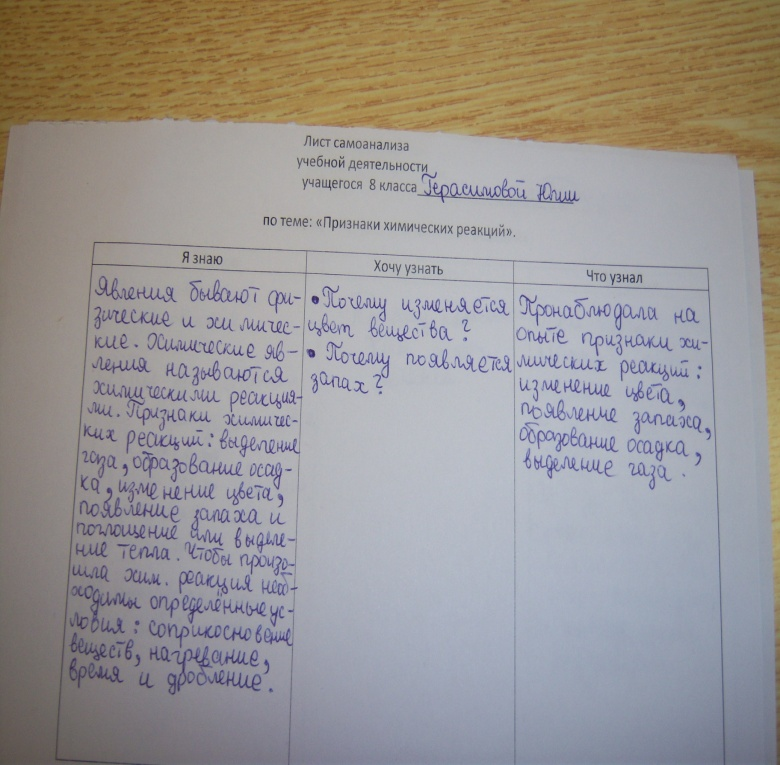 Лист самоанализа
учебной деятельности
учащегося 8 класса Герасимовой Юлии
по теме: «Признаки химических реакций».
Я знаю
Явления бывают фи-
зические и химичес-
кие. Химические яв-
ления называются
химическими реакция-
ми. Признаки химичес-
ких реакций: выделение
газа, образование осад-
ка, изменение цвета,
появление запаха и
поглощение или выделе-
ние тепла. Чтобы произо-
шла хим. реакция необ-
ходимы определённые ус-
ловия: соприкосновение
веществ, нагревание,
время и дробление.
Хочу узнать
• Почему изменяется
цвет вещества?
• Почему появляется
запах?
Что узнал
Пронаблюдала на
опыте признаки хи-
мических реакций:
изменение цвета,
появление запаха,
образование осадка,
выделение газа.